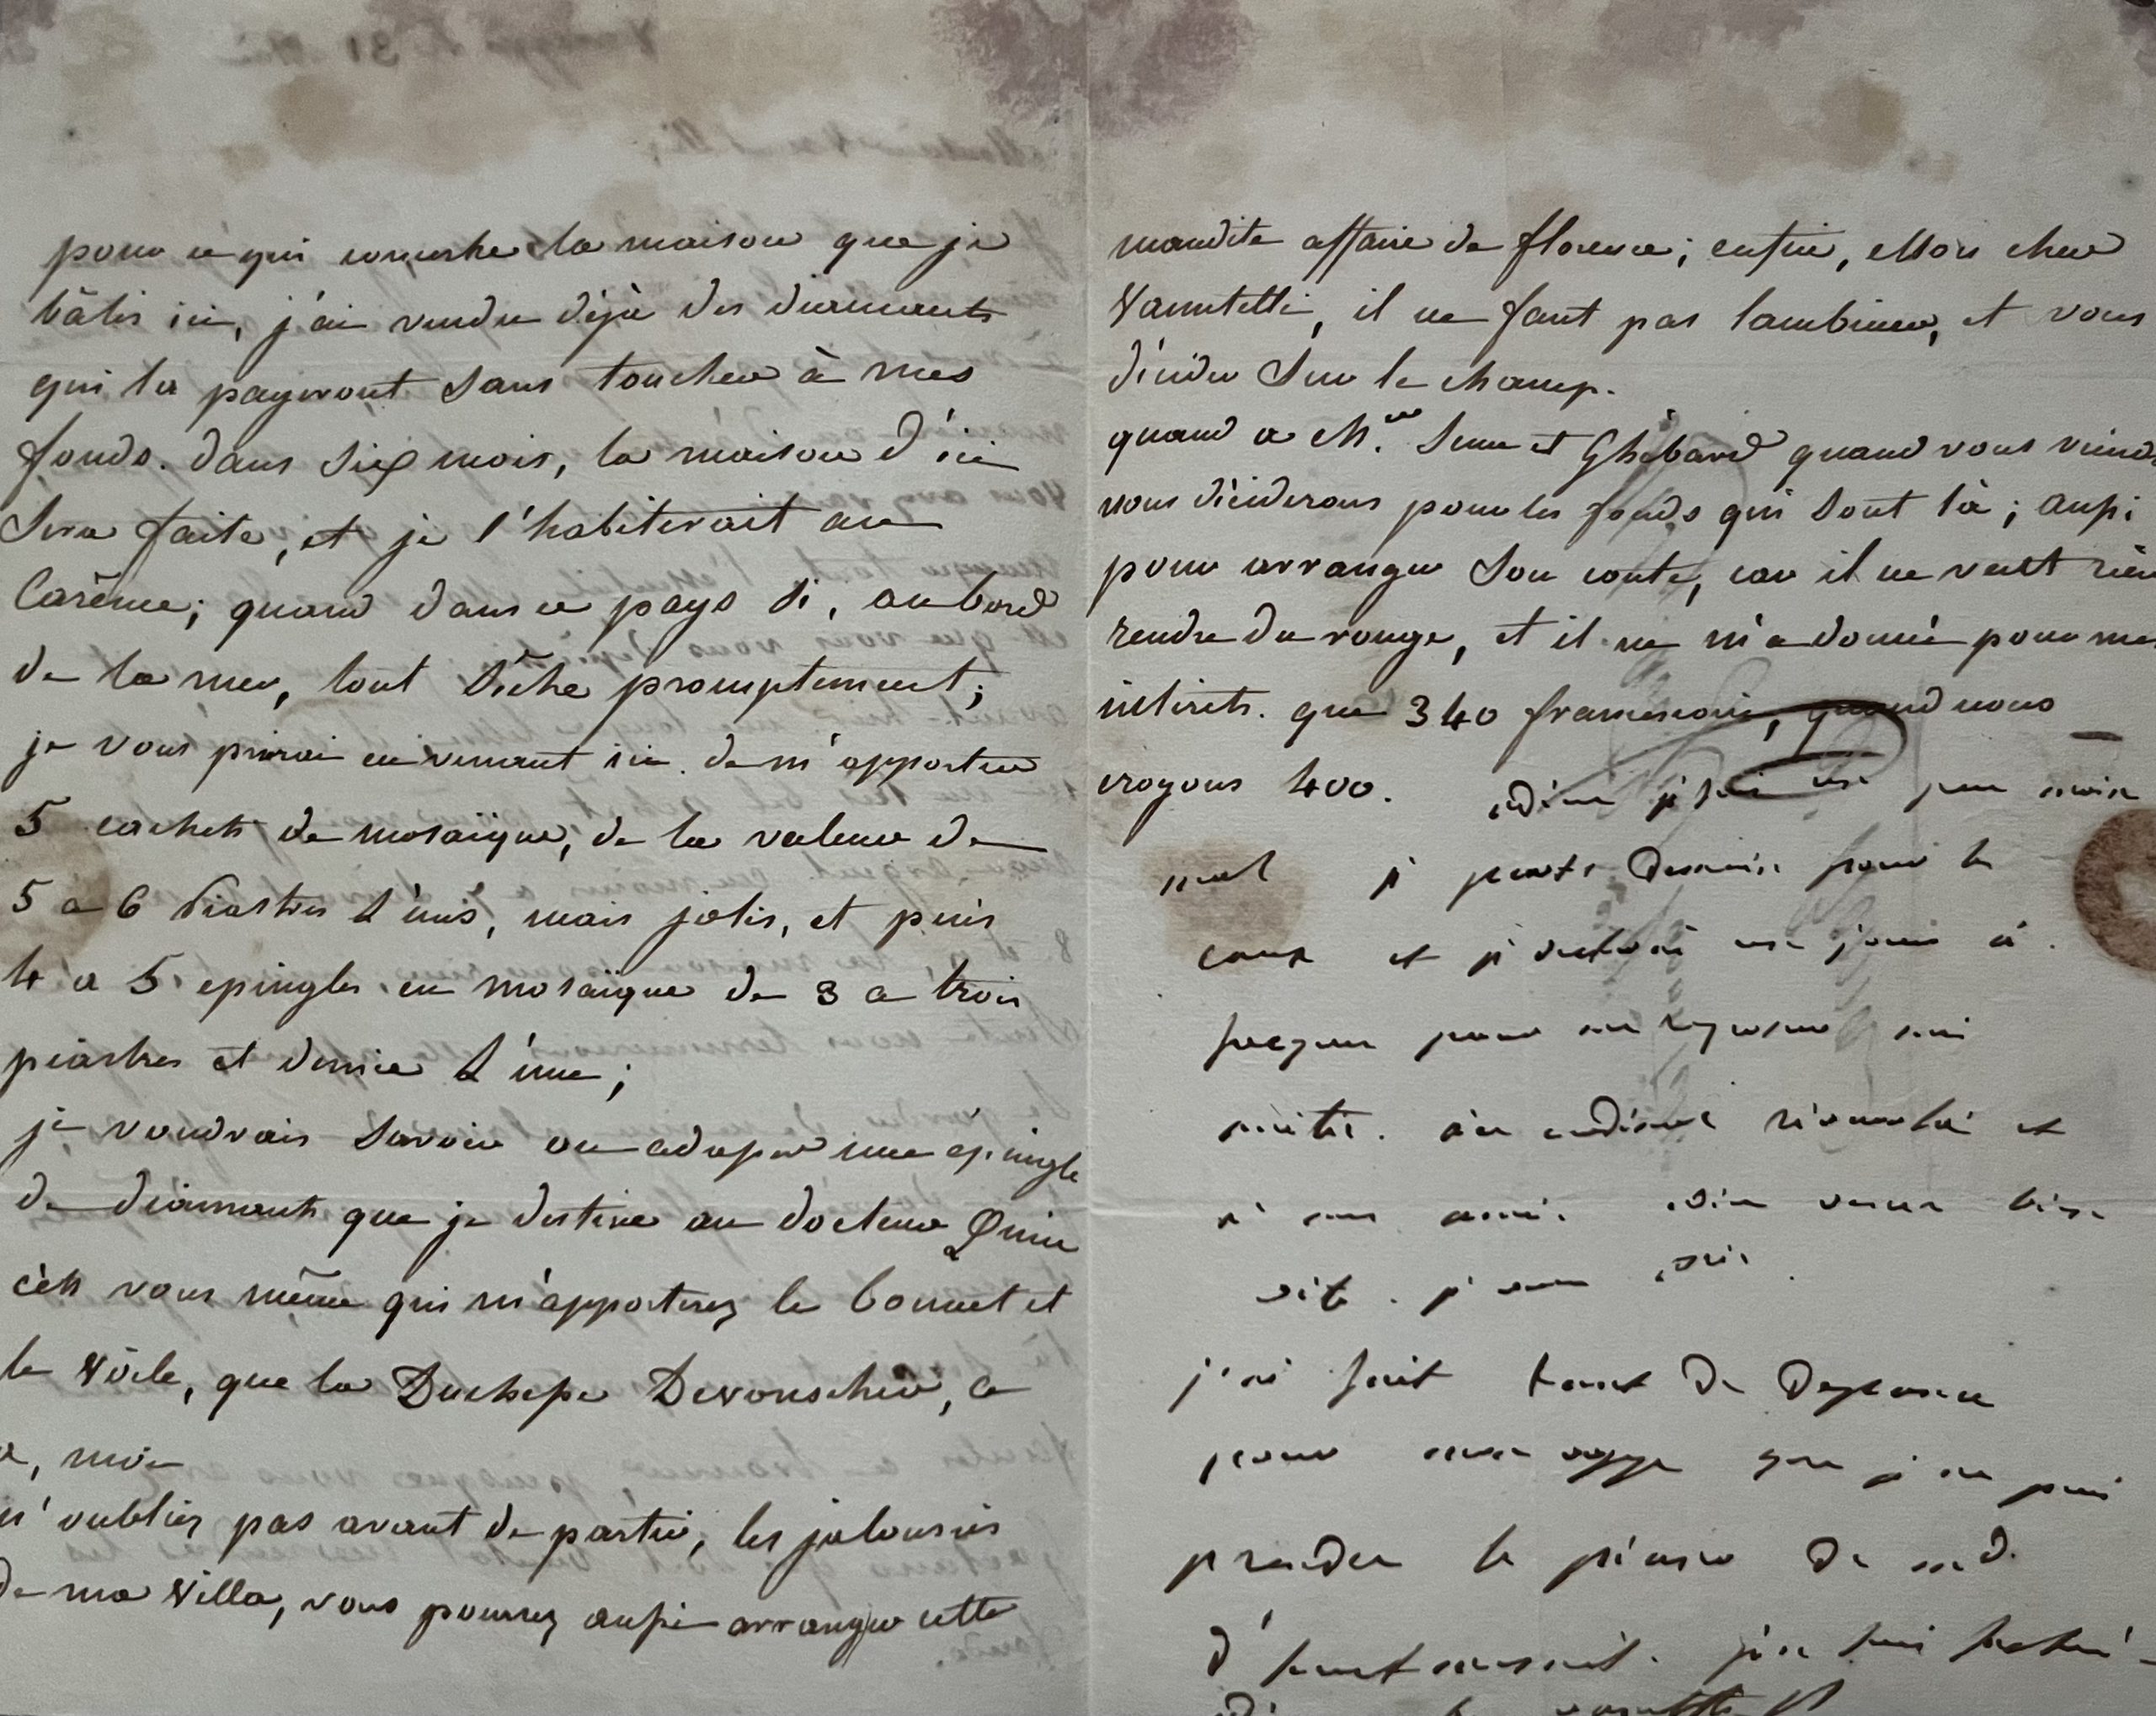 pour ce qui concerne la maison que je
bâtis ici, j'ai vendu déjà des diamants
qui la payeront sans toucher à mes
fonds. dans six mois, la maison d'ici
sera faite, et je l'habiterait au
Carême; quand dans ce pays si, au bord
de la mer, tout sèche promptement;
je vous prirai en venant ici de m'apporter
5 cachets de mosaïque, de la valeur de
5 a 6 piastres l'uns, mais jolis, et puis
4 a 5 epingles en mosaïque de 3 a trois
piastres et demie l'une;
je voudrais savoir ou adresser une epingle
de diamants que je destine au docteur Quin
c'est vous même qui m'apporterez le bonnet et
le Voile, que la Duchesse Devonschir, a
a, moi
n'oubliez pas avant de partir, les jalousies
de ma Villa, vous pourrez aussi arranger cette
maudite affaire de florence; enfin, Mon cher
Vannutelli, il ne faut pas lambiner, et vous
décider sur le champ.
quand a Mr. et quand vous
nous déciderons pour les fonds qui sont là; aussi
pour arranger son conte, car il ne veut rien
rendre du rouge, et il ne m'a donné pour mes
intérets que 340 francesconi, quand nous
croyons 400. adieu je suis un peu moin
mal je parts demain pour la
et je un jour à
pour me reposer une
moitié.
mon ami. bien
vite. je
j'ai fait tant de depense
pour mon que je ne puis
prendre la de md.
d'hautmesnil. j'en suis faché